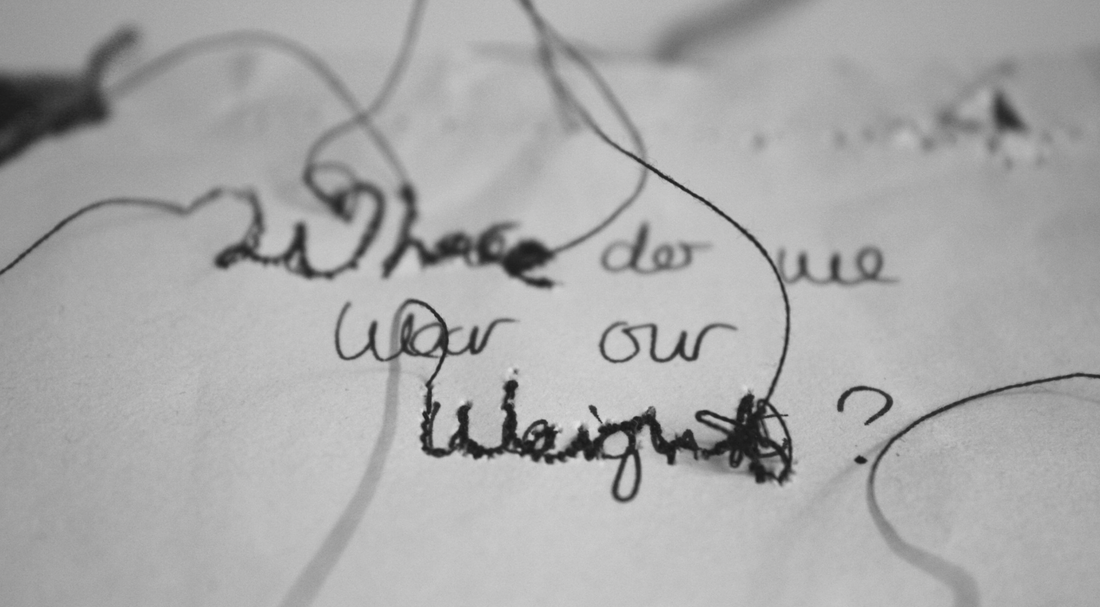 Where do we
wear our
Weight ?